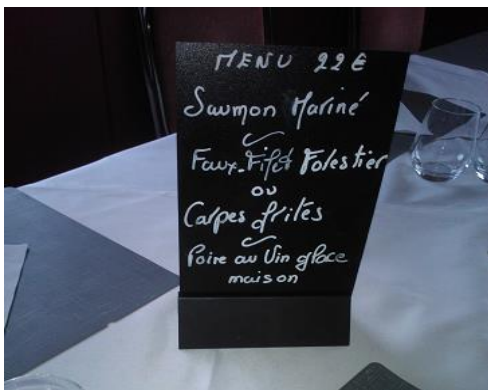 MENU 22€
Saumon Mariné
Faux-Filet Forestier
ou
Carpes frites
Poire au Vin glace
maison